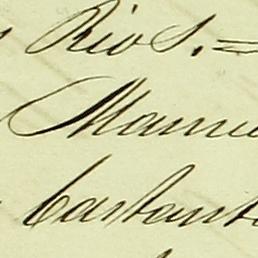 Rios.=
Manu
Castant